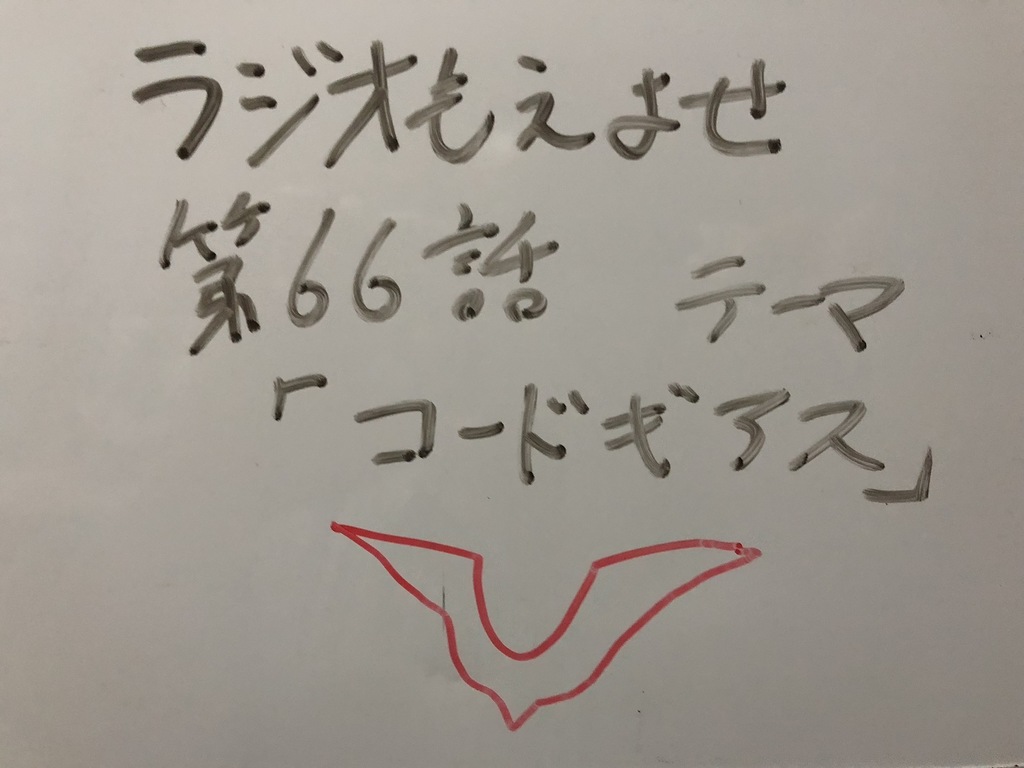 ラジオもえよせ
第66話 テーマ
「コードギアス」